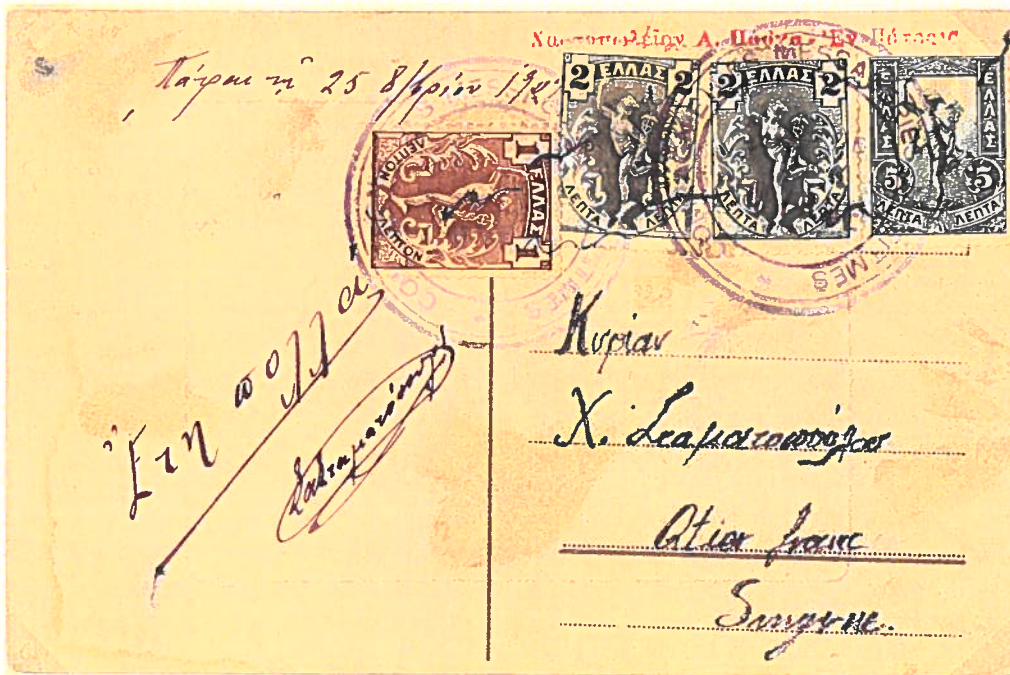 Χαρτοπωλεῖον Α. Πάσχα Ἐν Πάτραις
Πάτραι τῇ 25 8/βρίου
2 ΕΛΛΑΣ 2
ΛΕΠΤΑ ΛΕΠΤΑ
2 ΕΛΛΑΣ 2
ΛΕΠΤΑ ΛΕΠΤΑ
ΕΛΛΑΣ ΕΛΛΑΣ
5 5
ΛΕΠΤΑ ΛΕΠΤΑ
1 ΕΛΛΑΣ 1
ΛΕΠΤΟΝ ΛΕΠΤΟΝ
Ἔτη πολλά
Κυρίαν
Χ. Σταματοπούλου
Qtier franc
Smyrne.